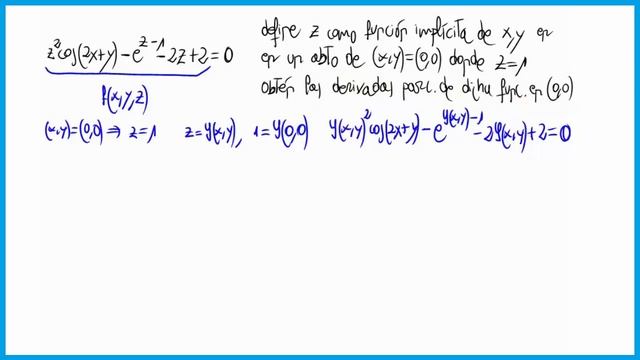 z² cos(2x+y) - e^{z-1} - 2z + 2 = 0
f(x,y,z)
define z como función implícita de x,y en
en un abto de (x,y)=(0,0) donde z=1
obtén las derivadas parc. de dicha func. en (0,0)
(x,y)=(0,0) ⇒ z=1 z=φ(x,y), 1=φ(0,0) φ(x,y)² cos(2x+y) - e^{φ(x,y)-1} - 2φ(x,y) + 2 = 0